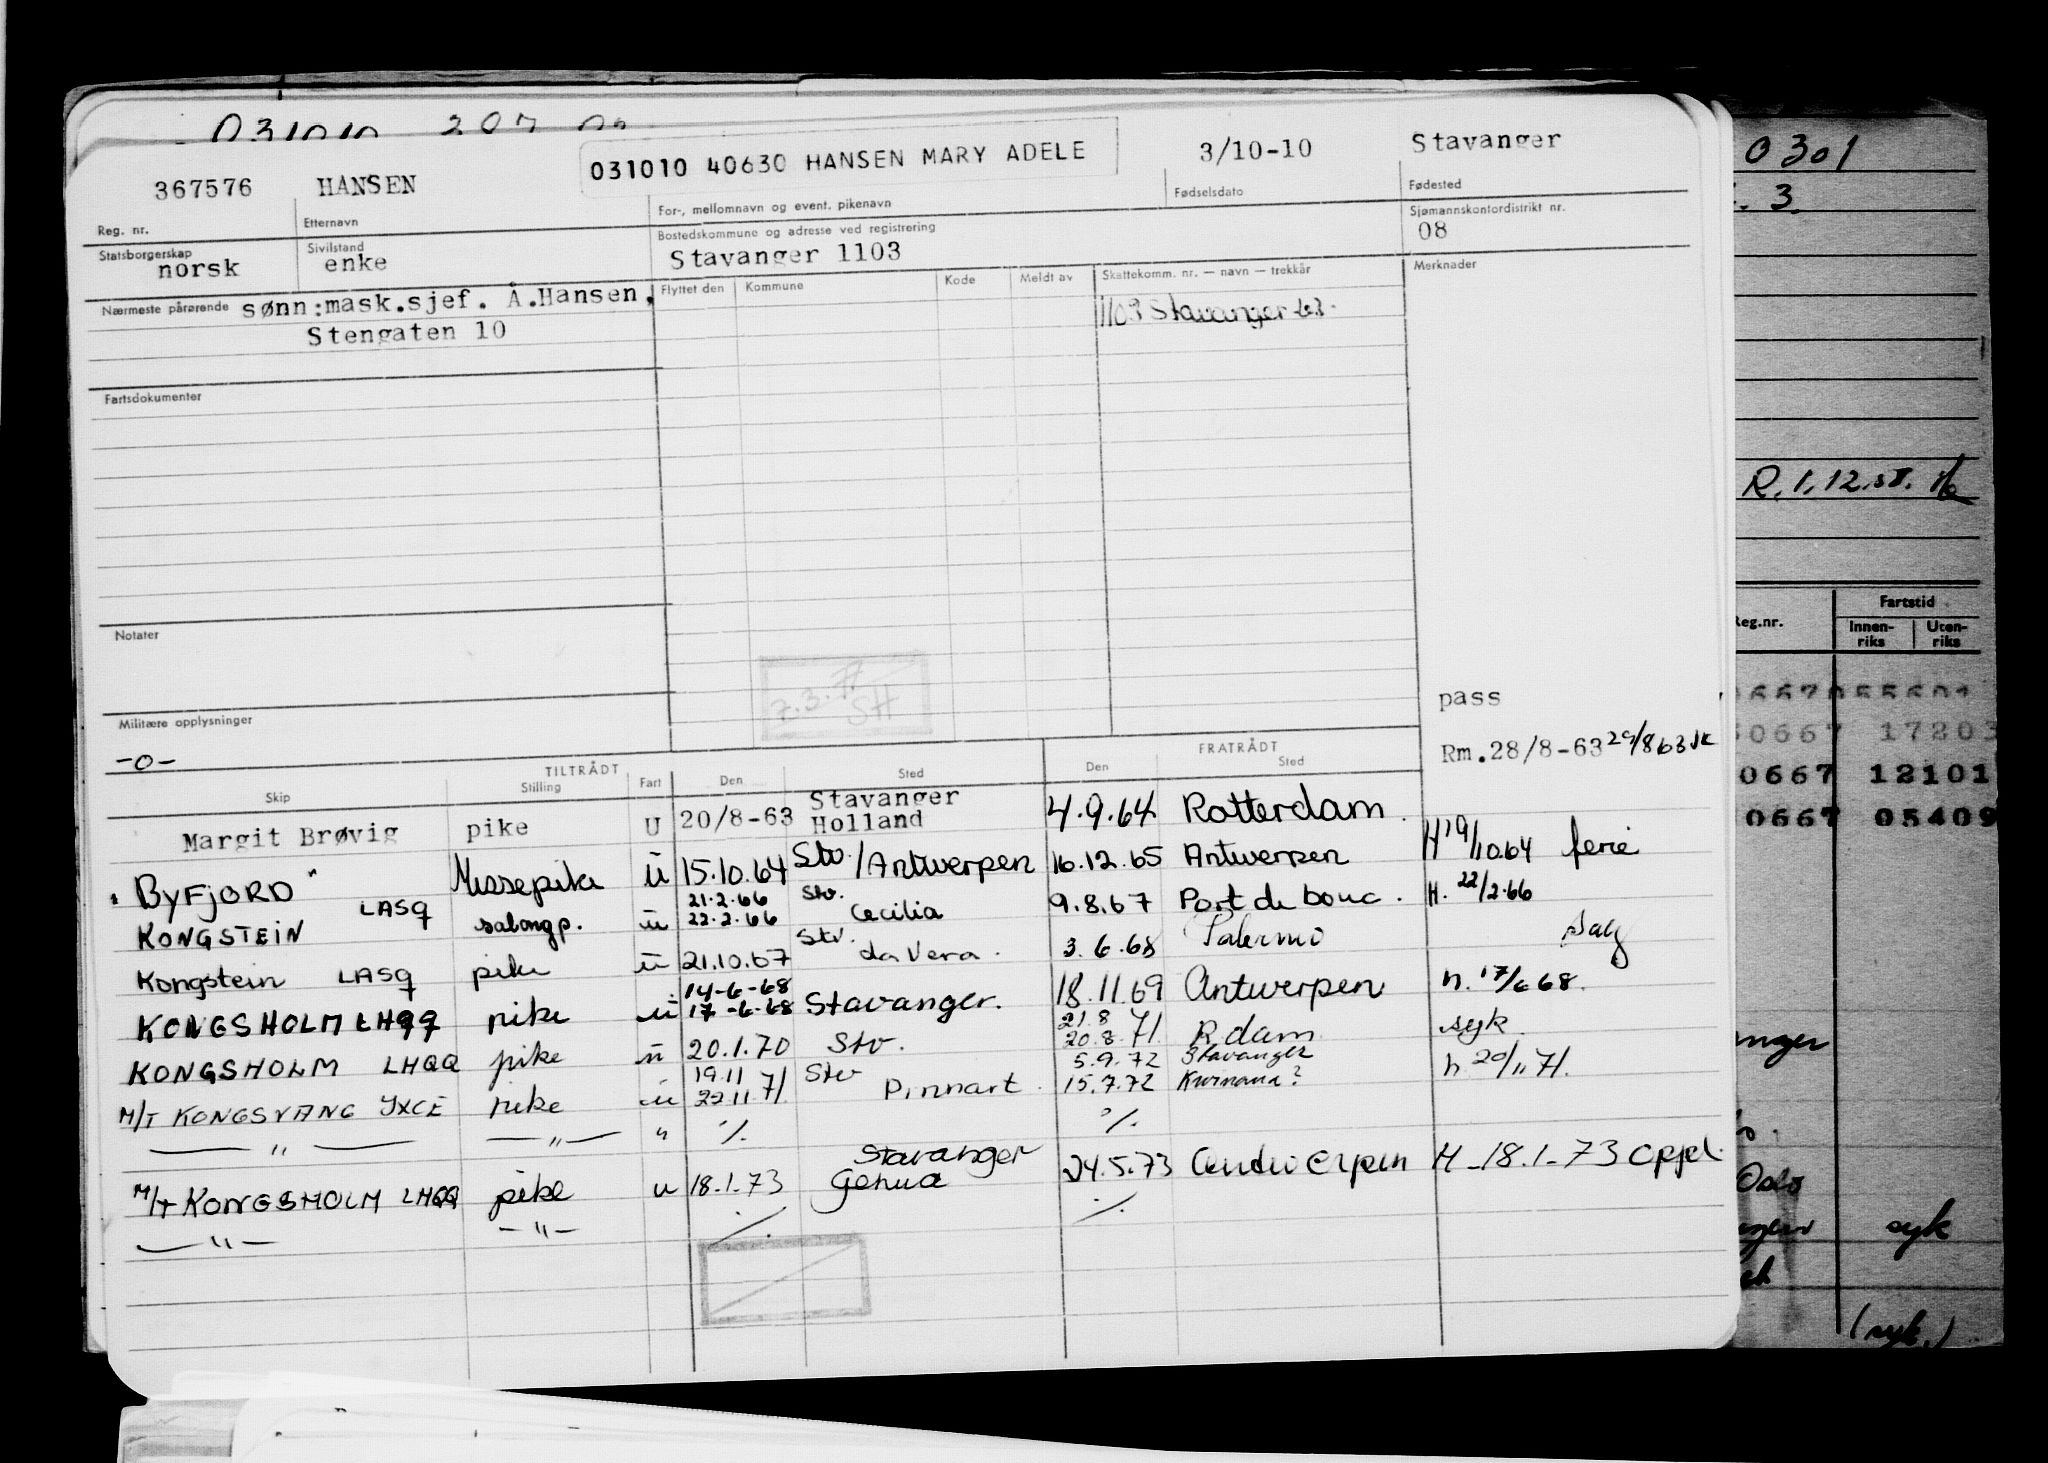 367576 HANSEN 031010 40630 HANSEN MARY ADELE 3/10-10 Stavanger
Reg. nr. Etternavn For-, mellomnavn og event. pikenavn Fødselsdato Fødested
Statsborgerskap Sivilstand Bostedskommune og adresse ved registrering Sjømannskontordistrikt nr.
norsk enke Stavanger 1103 08
Nærmeste pårørende sønn:mask.sjef. Å.Hansen, Flyttet den Kommune Kode Meldt av Skattekomm. nr. — navn — trekkår Merknader
Stengaten 10 1103 Stavanger 63.
Fartsdokumenter
Notater
7.3.77
SH
pass
Militære opplysninger
-o-
Rm.28/8-63 29/8 63
TILTRÅDT FRATRÅDT
Skip Stilling Fart Den Sted Den Sted
Margit Brøvig pike U 20/8-63 Stavanger Holland 4.9.64 Rotterdam.
"BYFJORD" Messepike u 15.10.64 Stv./Antwerpen 16.12.65 Antwerpen H 19/10.64 ferie
KONGSTEIN LASQ salongp. u 21.2.66 22.2.66 Stv. Cecilia 9.8.67 Port de bouc. H. 22/2.66
Kongstein LASQ pike u 21.10.67 Stv. da Vera. 3.6.68 Palermo
KONGSHOLM LHQQ pike u 14-6-68 17-6-68 Stavanger. 18.11.69 Antwerpen h. 17/6 68.
KONGSHOLM LHQQ pike u 20.1.70 Stv. 21.8 20.8.71. R.dam. syk.
M/T KONGSVANG JXCE pike u 19.11 22.11.71. Stv Pinnart. 5.9.72 Stavanger 15.7.72 Kwinana? h 20/11 71.
— " — — " — " ⁒ ⁒
M/T KONGSHOLM LHQQ pike u 18.1.73 Stavanger Genua 24.5.73 Antwerpen H-18.1-73 oppl.
— " — — " — ⁒ ⁒
0301
3.
R.1.12.
Reg.nr. Fartstid
Innen-riks Uten-riks
0667 17203
0667 12101
0667 05409
Oslo
syk
(syk.)